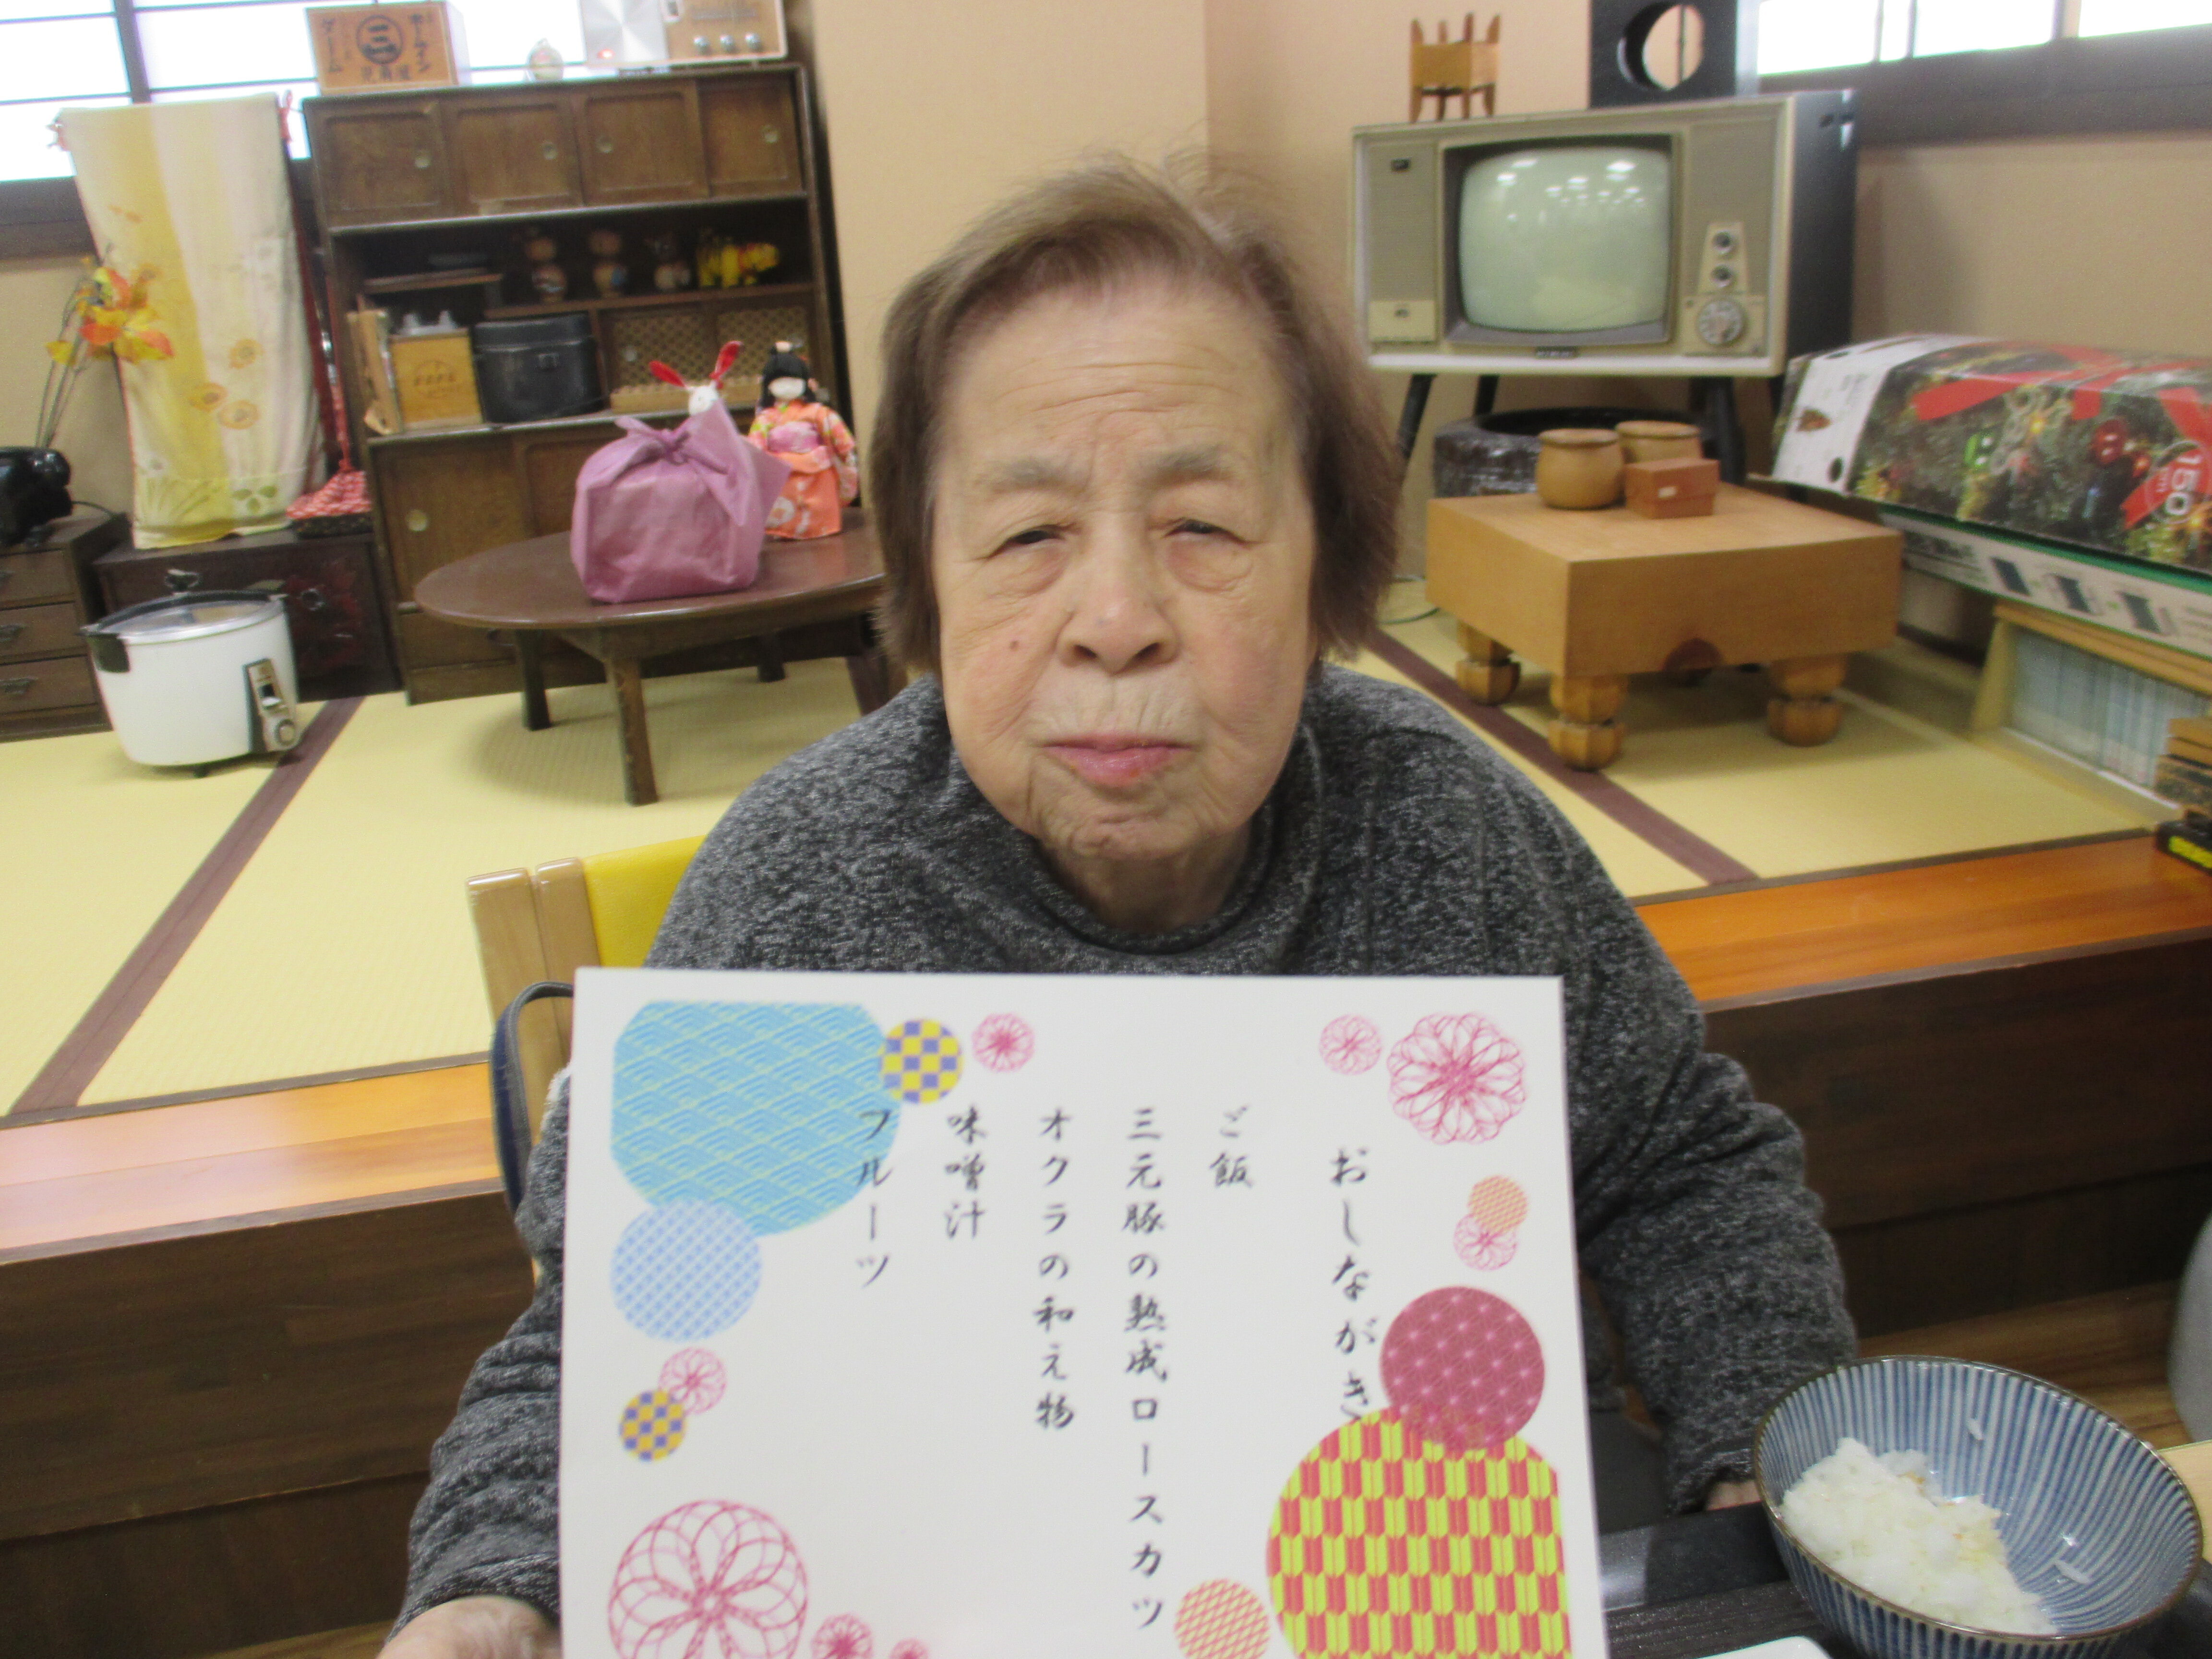 おしながき
ご飯
三元豚の熟成ロースカツ
オクラの和え物
味噌汁
フルーツ
150